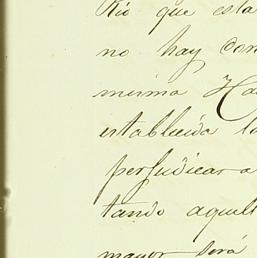 Rio que esta
no hay con
misma Ha
establecida la
perjudicar a
tando aquel
mayor será